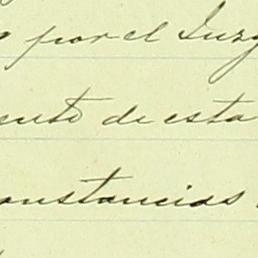 por el Juzg
ente de esta
onstancias